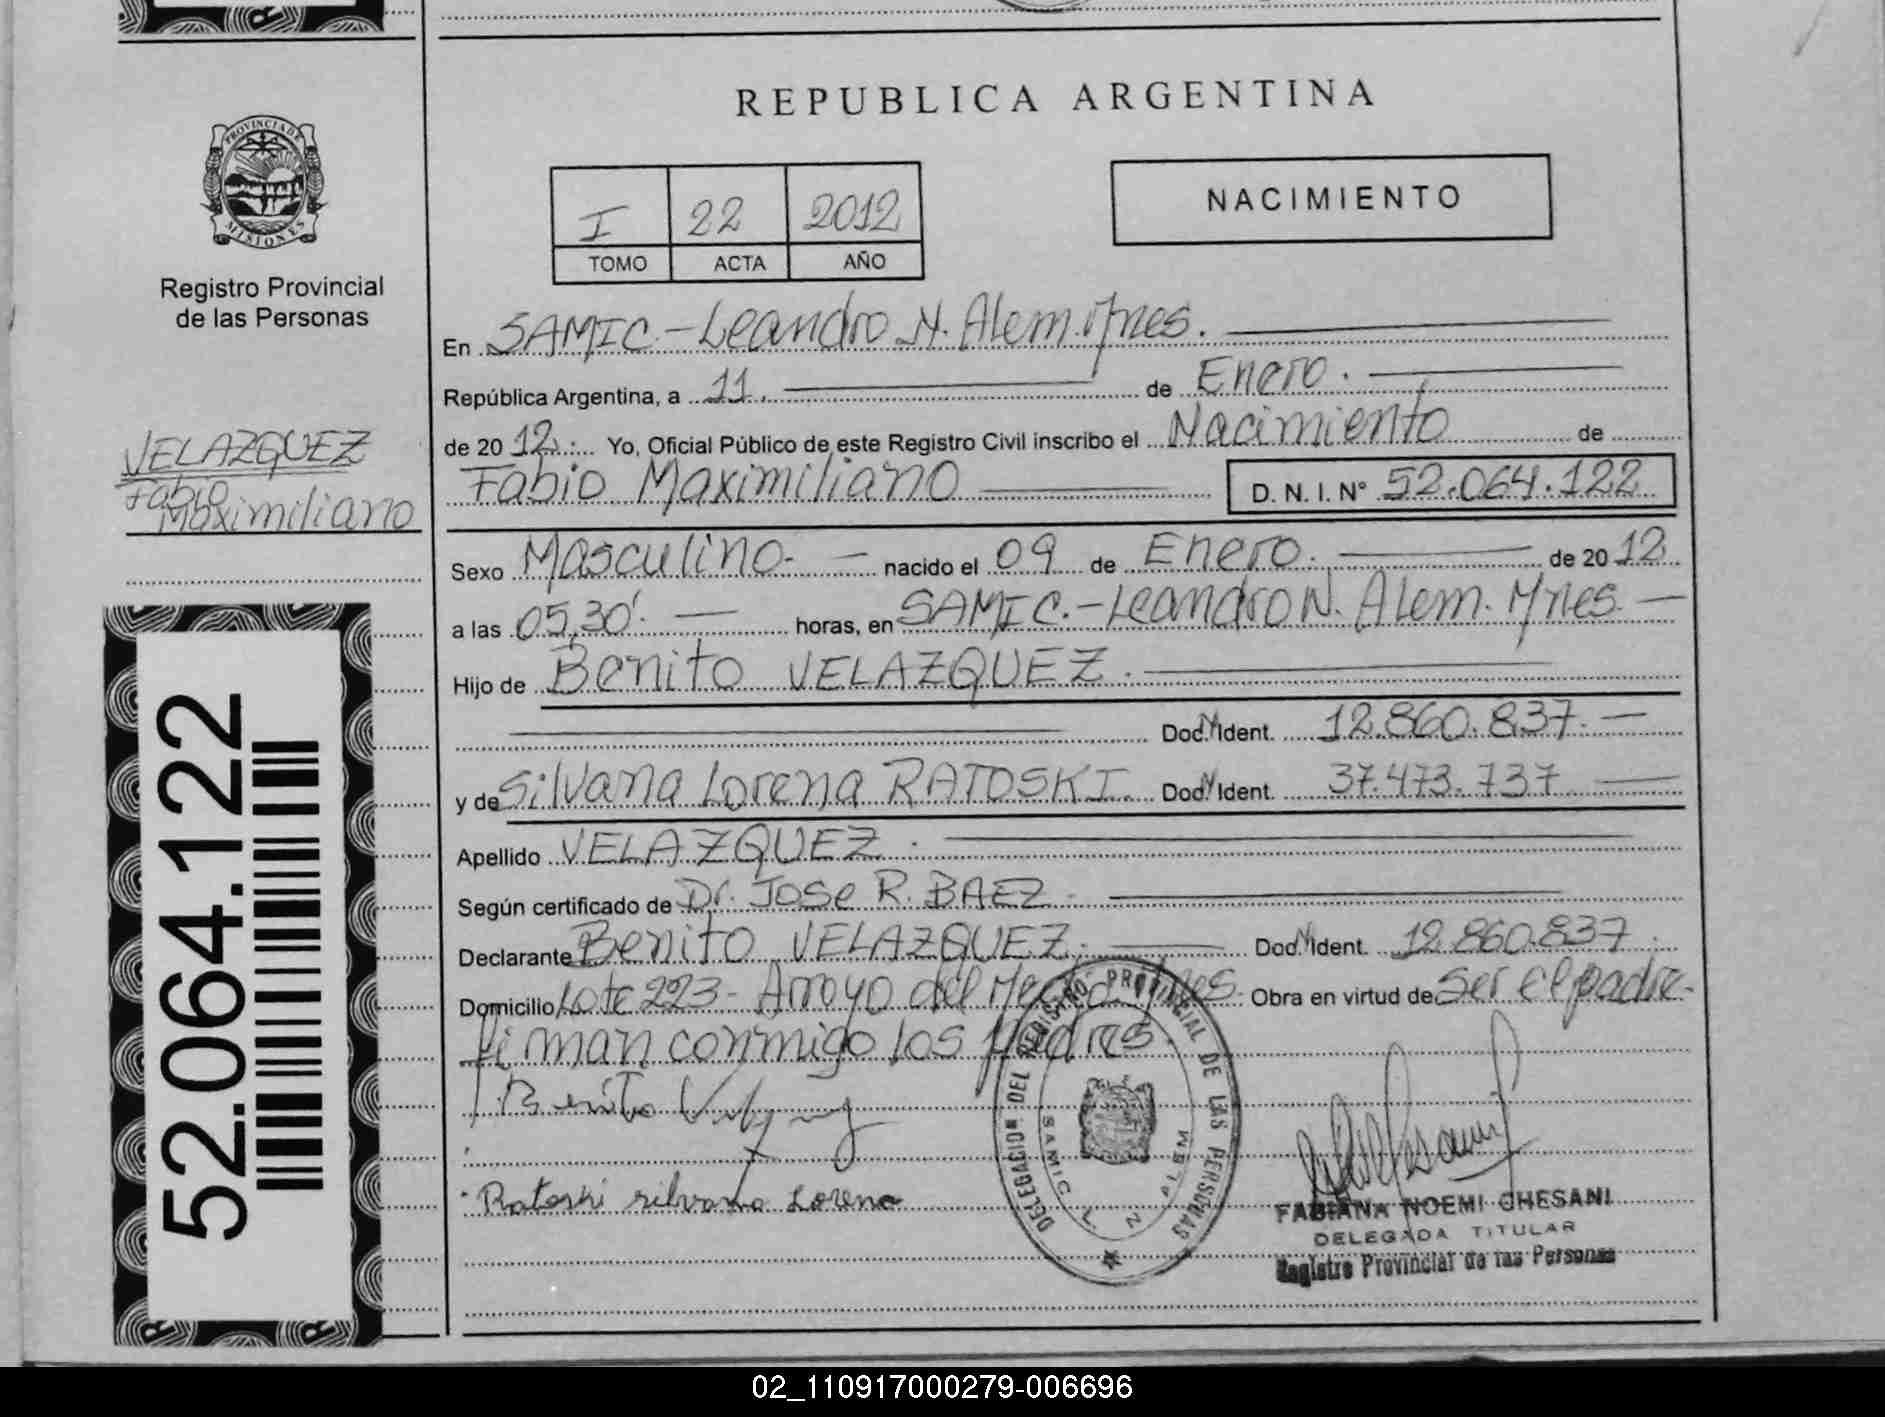 REPUBLICA ARGENTINA
PROVINCIA DE
MISIONES
Registro Provincial
de las Personas
I 22 2012
TOMO ACTA AÑO
NACIMIENTO
En SAMIC.-Leandro N. Alem. Mnes.
República Argentina, a 11. de Enero.
de 20 12. Yo, Oficial Público de este Registro Civil inscribo el Nacimiento de
Fabio Maximiliano D. N. I. N° 52.064.122
VELAZQUEZ
Fabio
Maximiliano
Sexo Masculino.- nacido el 09 de Enero. de 20 12.
a las 05,30'. horas, en SAMIC.-Leandro N. Alem. Mnes.
Hijo de Benito VELAZQUEZ.
Doc. N Ident. 12.860.837.
y de Silvana Lorena RATOSKI. Doc. N Ident. 37.473.737
Apellido VELAZQUEZ.
Según certificado de Dr. Jose R. BAEZ.
Declarante Benito VELAZQUEZ. Doc. N Ident. 12.860.837.
Domicilio Lote 223- Arroyo del Medio Mnes. Obra en virtud de Ser el padre.
Firman conmigo los padres.
Benito
Ratoski silvana Lorena
DELEGACION DEL REGISTRO PROVINCIAL DE LAS PERSONAS
SAMIC L N ALEM
FABIANA NOEMI CHESANI
DELEGADA TITULAR
Registro Provincial de las Personas
52.064.122
02_110917000279-006696